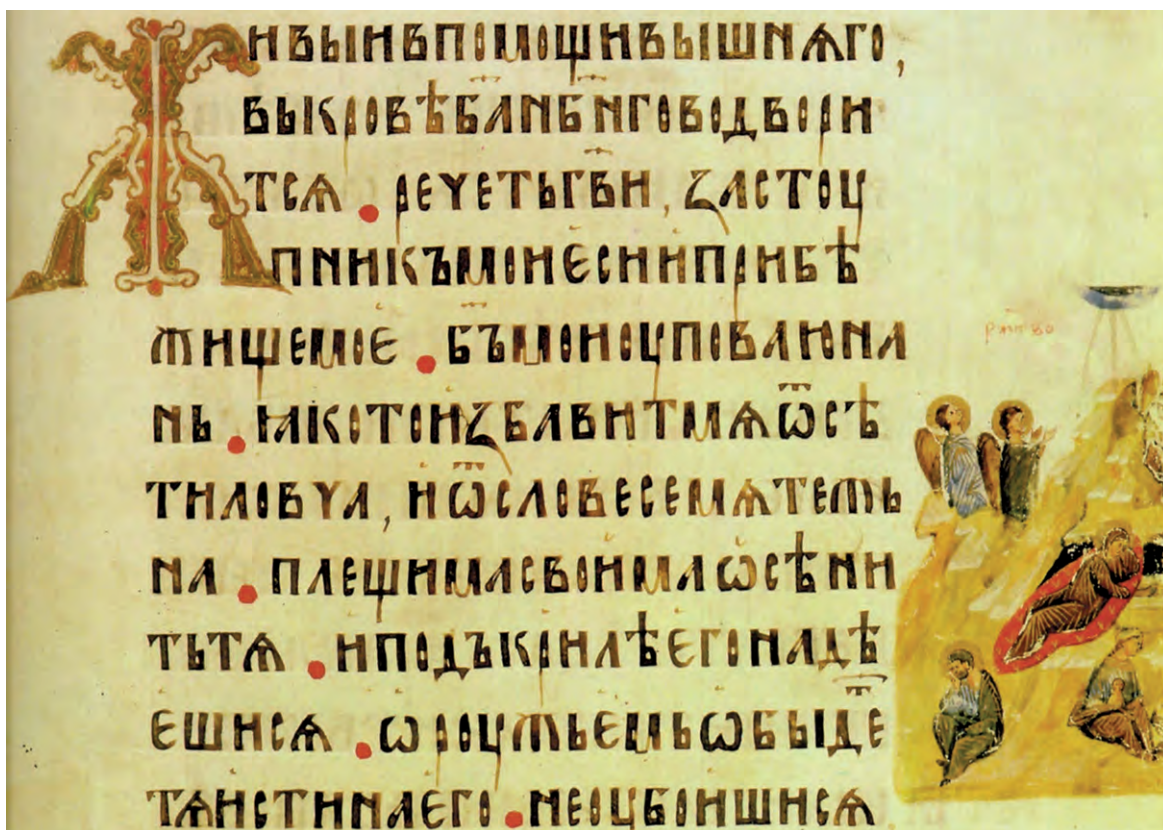 Живыивпомощивышнѧго,
вькровѣб҃анб҃нговодвори
тсѧ • речетьгв҃и, застоу
пникъмоиєсииприбѣ
жищемоє • б҃ъмоиоуповаюна
нь • ꙗкотоизбавитмѧѿсѣ
тиловча, иѿсловесемѧтежь
на • плещимасвоимаѡсѣни
тьтѧ • иподъкрилѣєгонадѣ
єшисѧ • ѡроужьємьѡбыдⷮе
тѧистинаєго • неоубоишисѧ